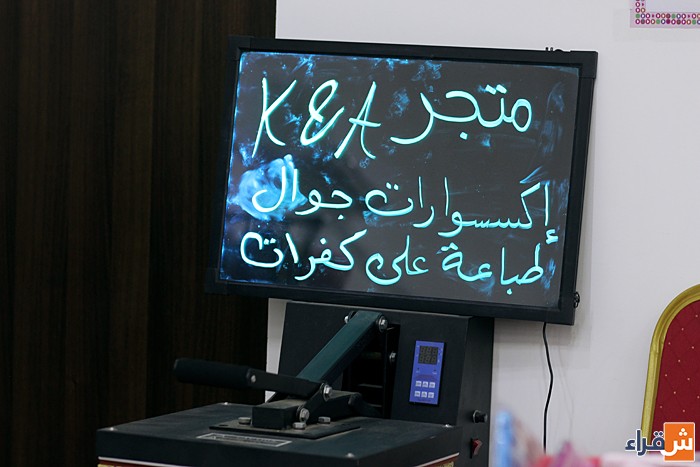 متجر K&A
إكسسوارات جوال
طباعة على كفرات
شقراء